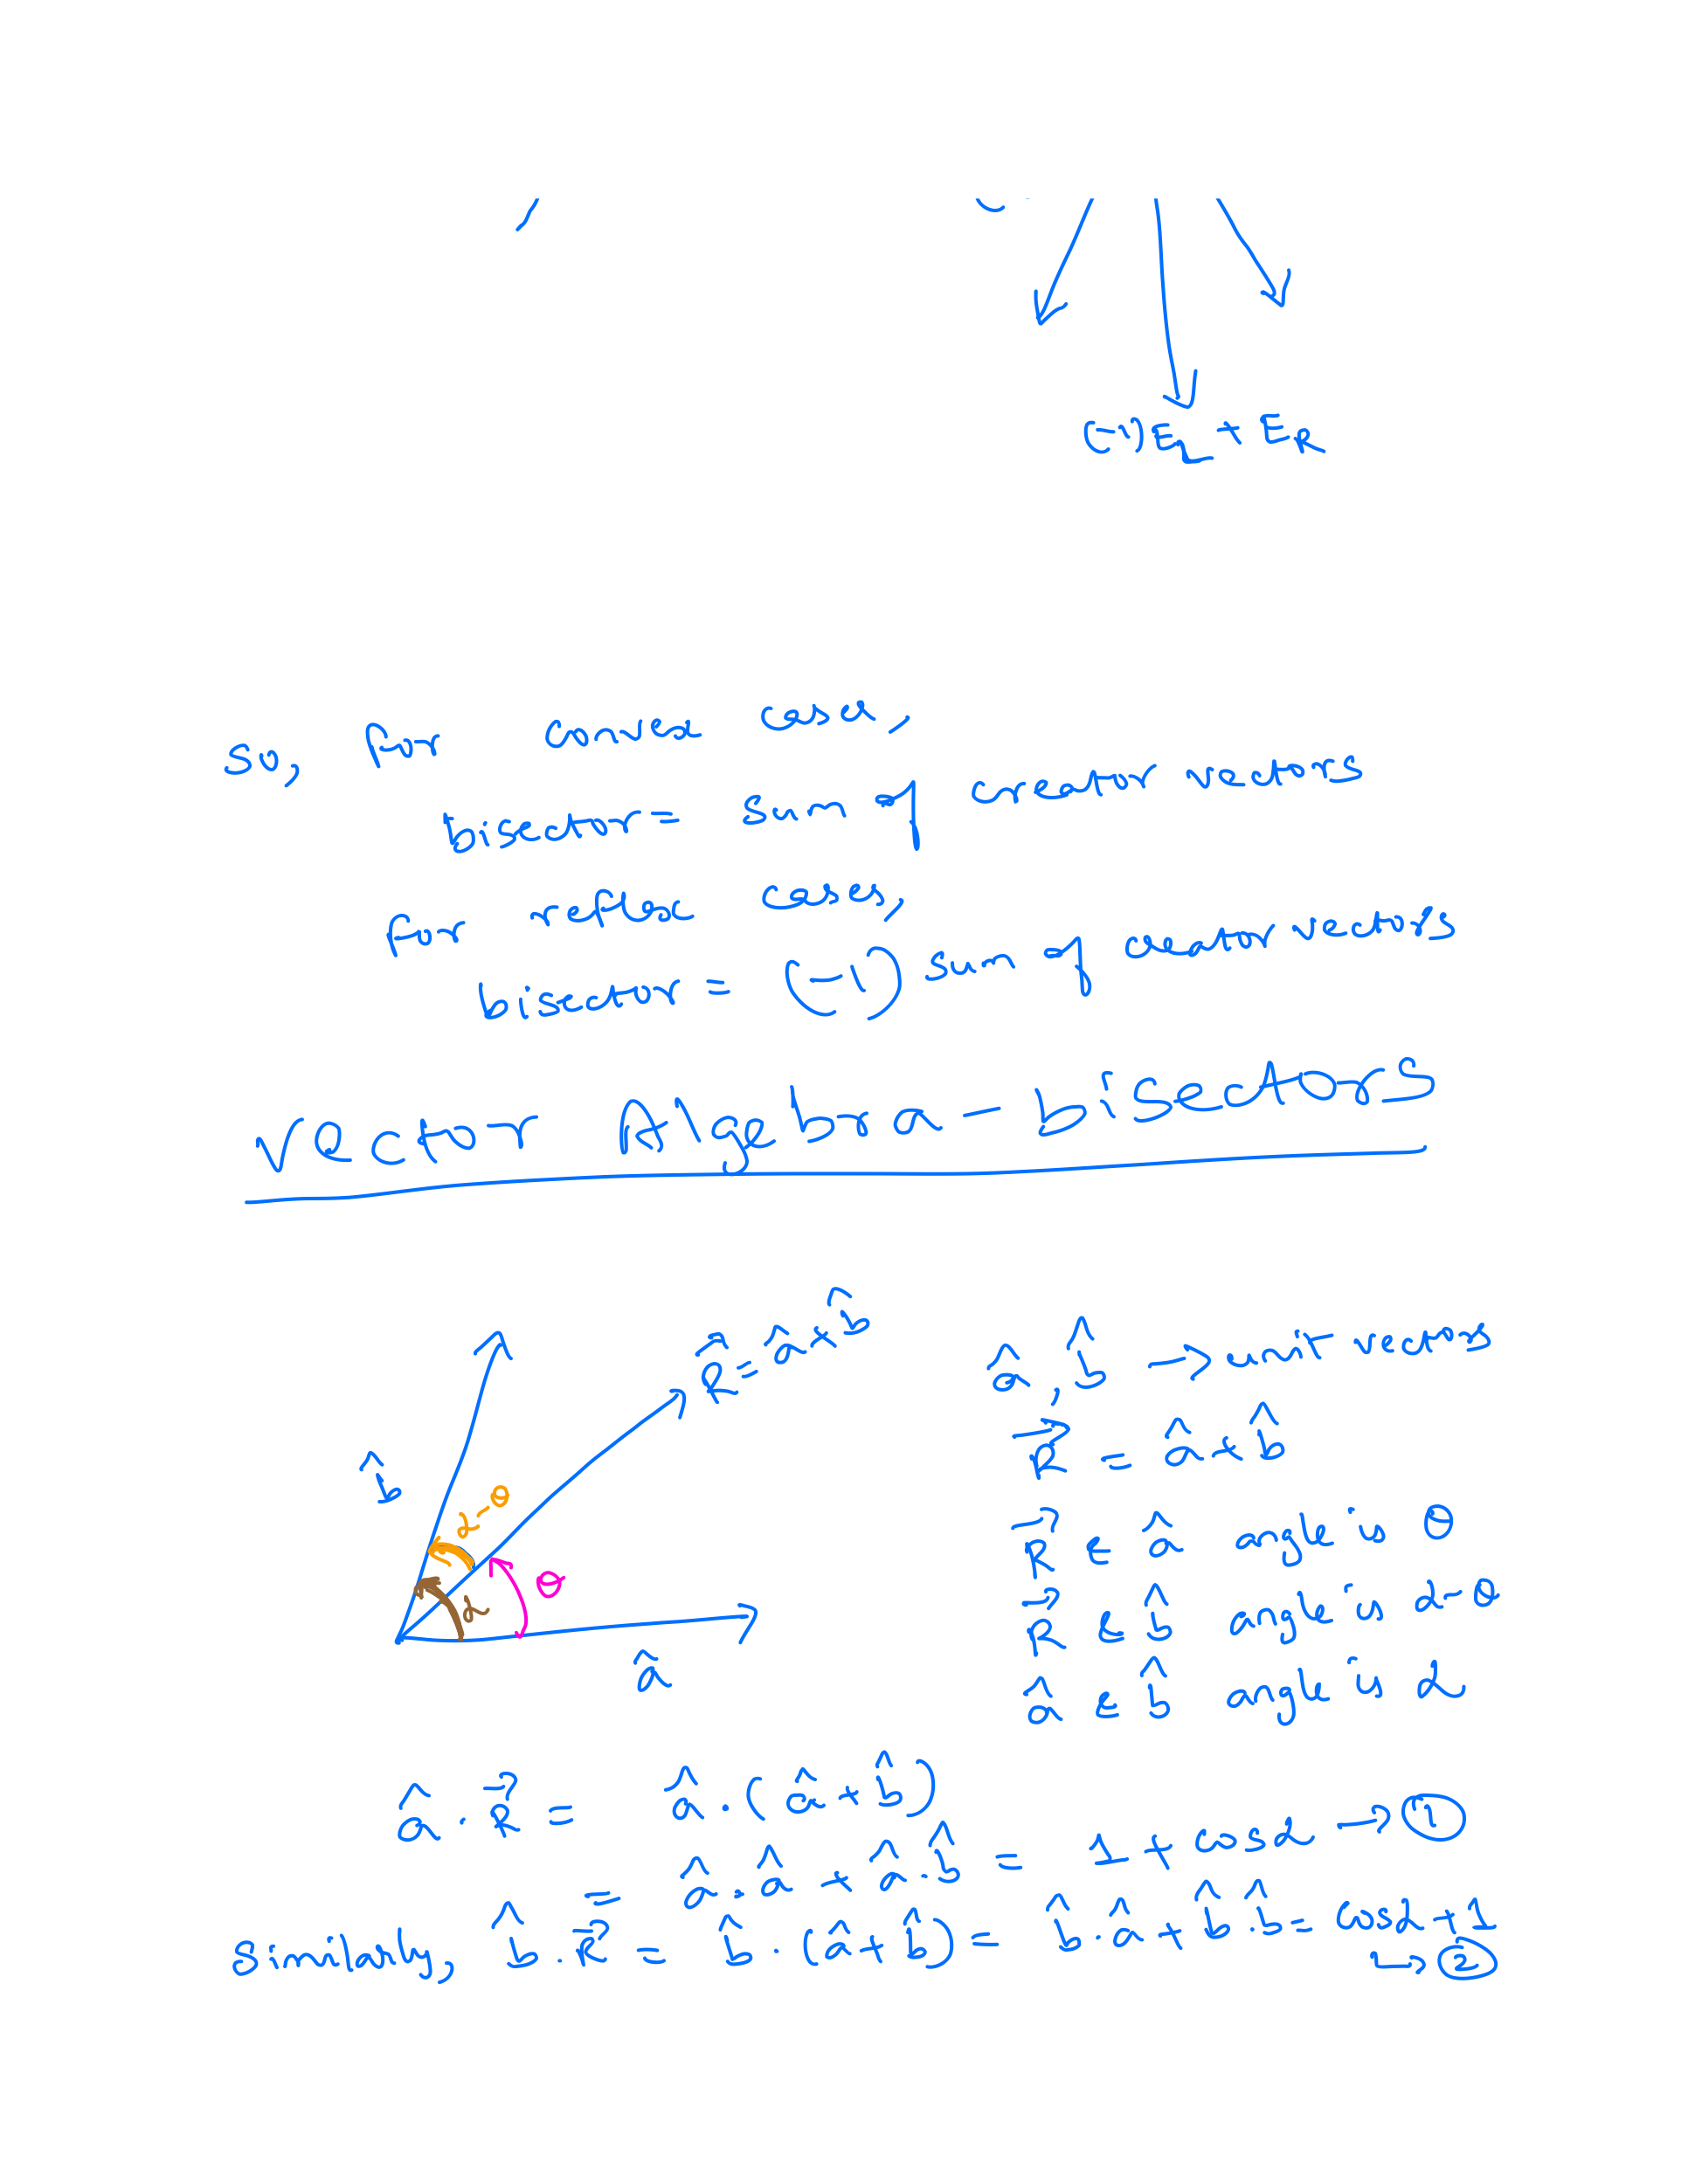 (-1)E_L + E_R
so, for convex cases,
bisector = sum of creator vectors
for reflex cases,
bisector = (-1) sum of creator vectors
Vector Algebra - bisectors
R⃗ = â + b̂
b̂
α-θ
α
θ
â
â, b̂ → unit vectors
R⃗ = â + b̂
R⃗ & â angle is θ
R⃗ & b̂ angle is α-θ
â & b̂ angle is α
â . R⃗ = â . (â + b̂)
= â . â + â . b̂ = 1 + cosα → ①
Similarly, b̂ . R⃗ = b̂ . (â + b̂) = b̂ . â + b̂ . b̂ = cosα + 1
↳ ②